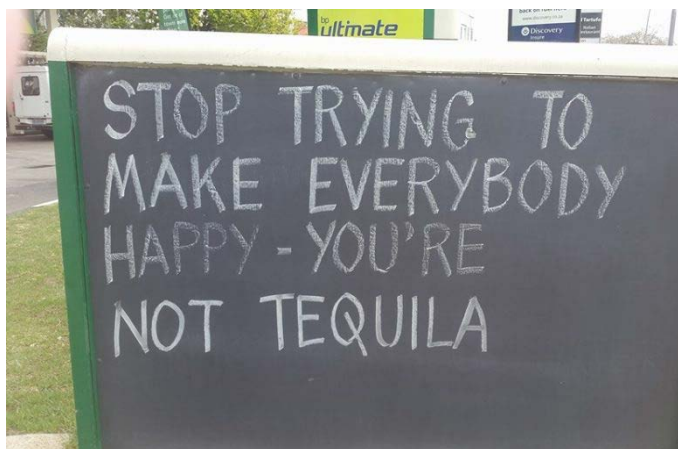 bp
ultimate
www.discovery.co.za
Discovery
STOP TRYING TO
MAKE EVERYBODY
HAPPY - YOU'RE
NOT TEQUILA